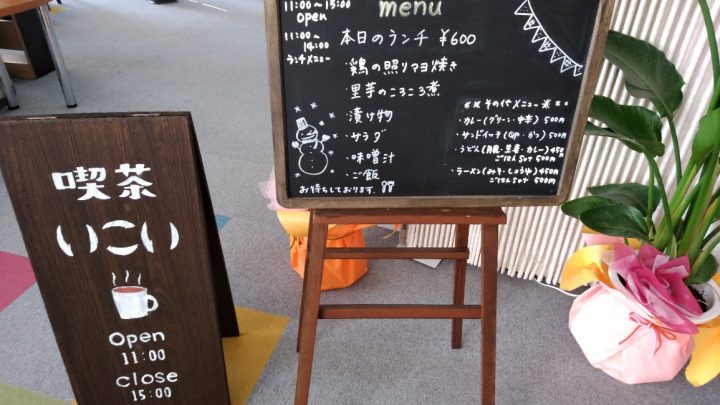 喫茶
いこい
Open
11:00
close
15:00
11:00~15:00
open
menu
11:00~
14:00
ランチメニュー
本日のランチ ¥600
・鶏の照りマヨ焼き
・里芋のころころ煮
・漬け物
・サラダ
・味噌汁
・ご飯
お待ちしております
その他メニュー
・カレー(グリーン・中辛) 500円
・サンドイーチ
500円
・うどん
・カレー) 450円
ごはんset 500円
・ラーメン(みそ・しょうゆ) 450円
ごはんset 500円